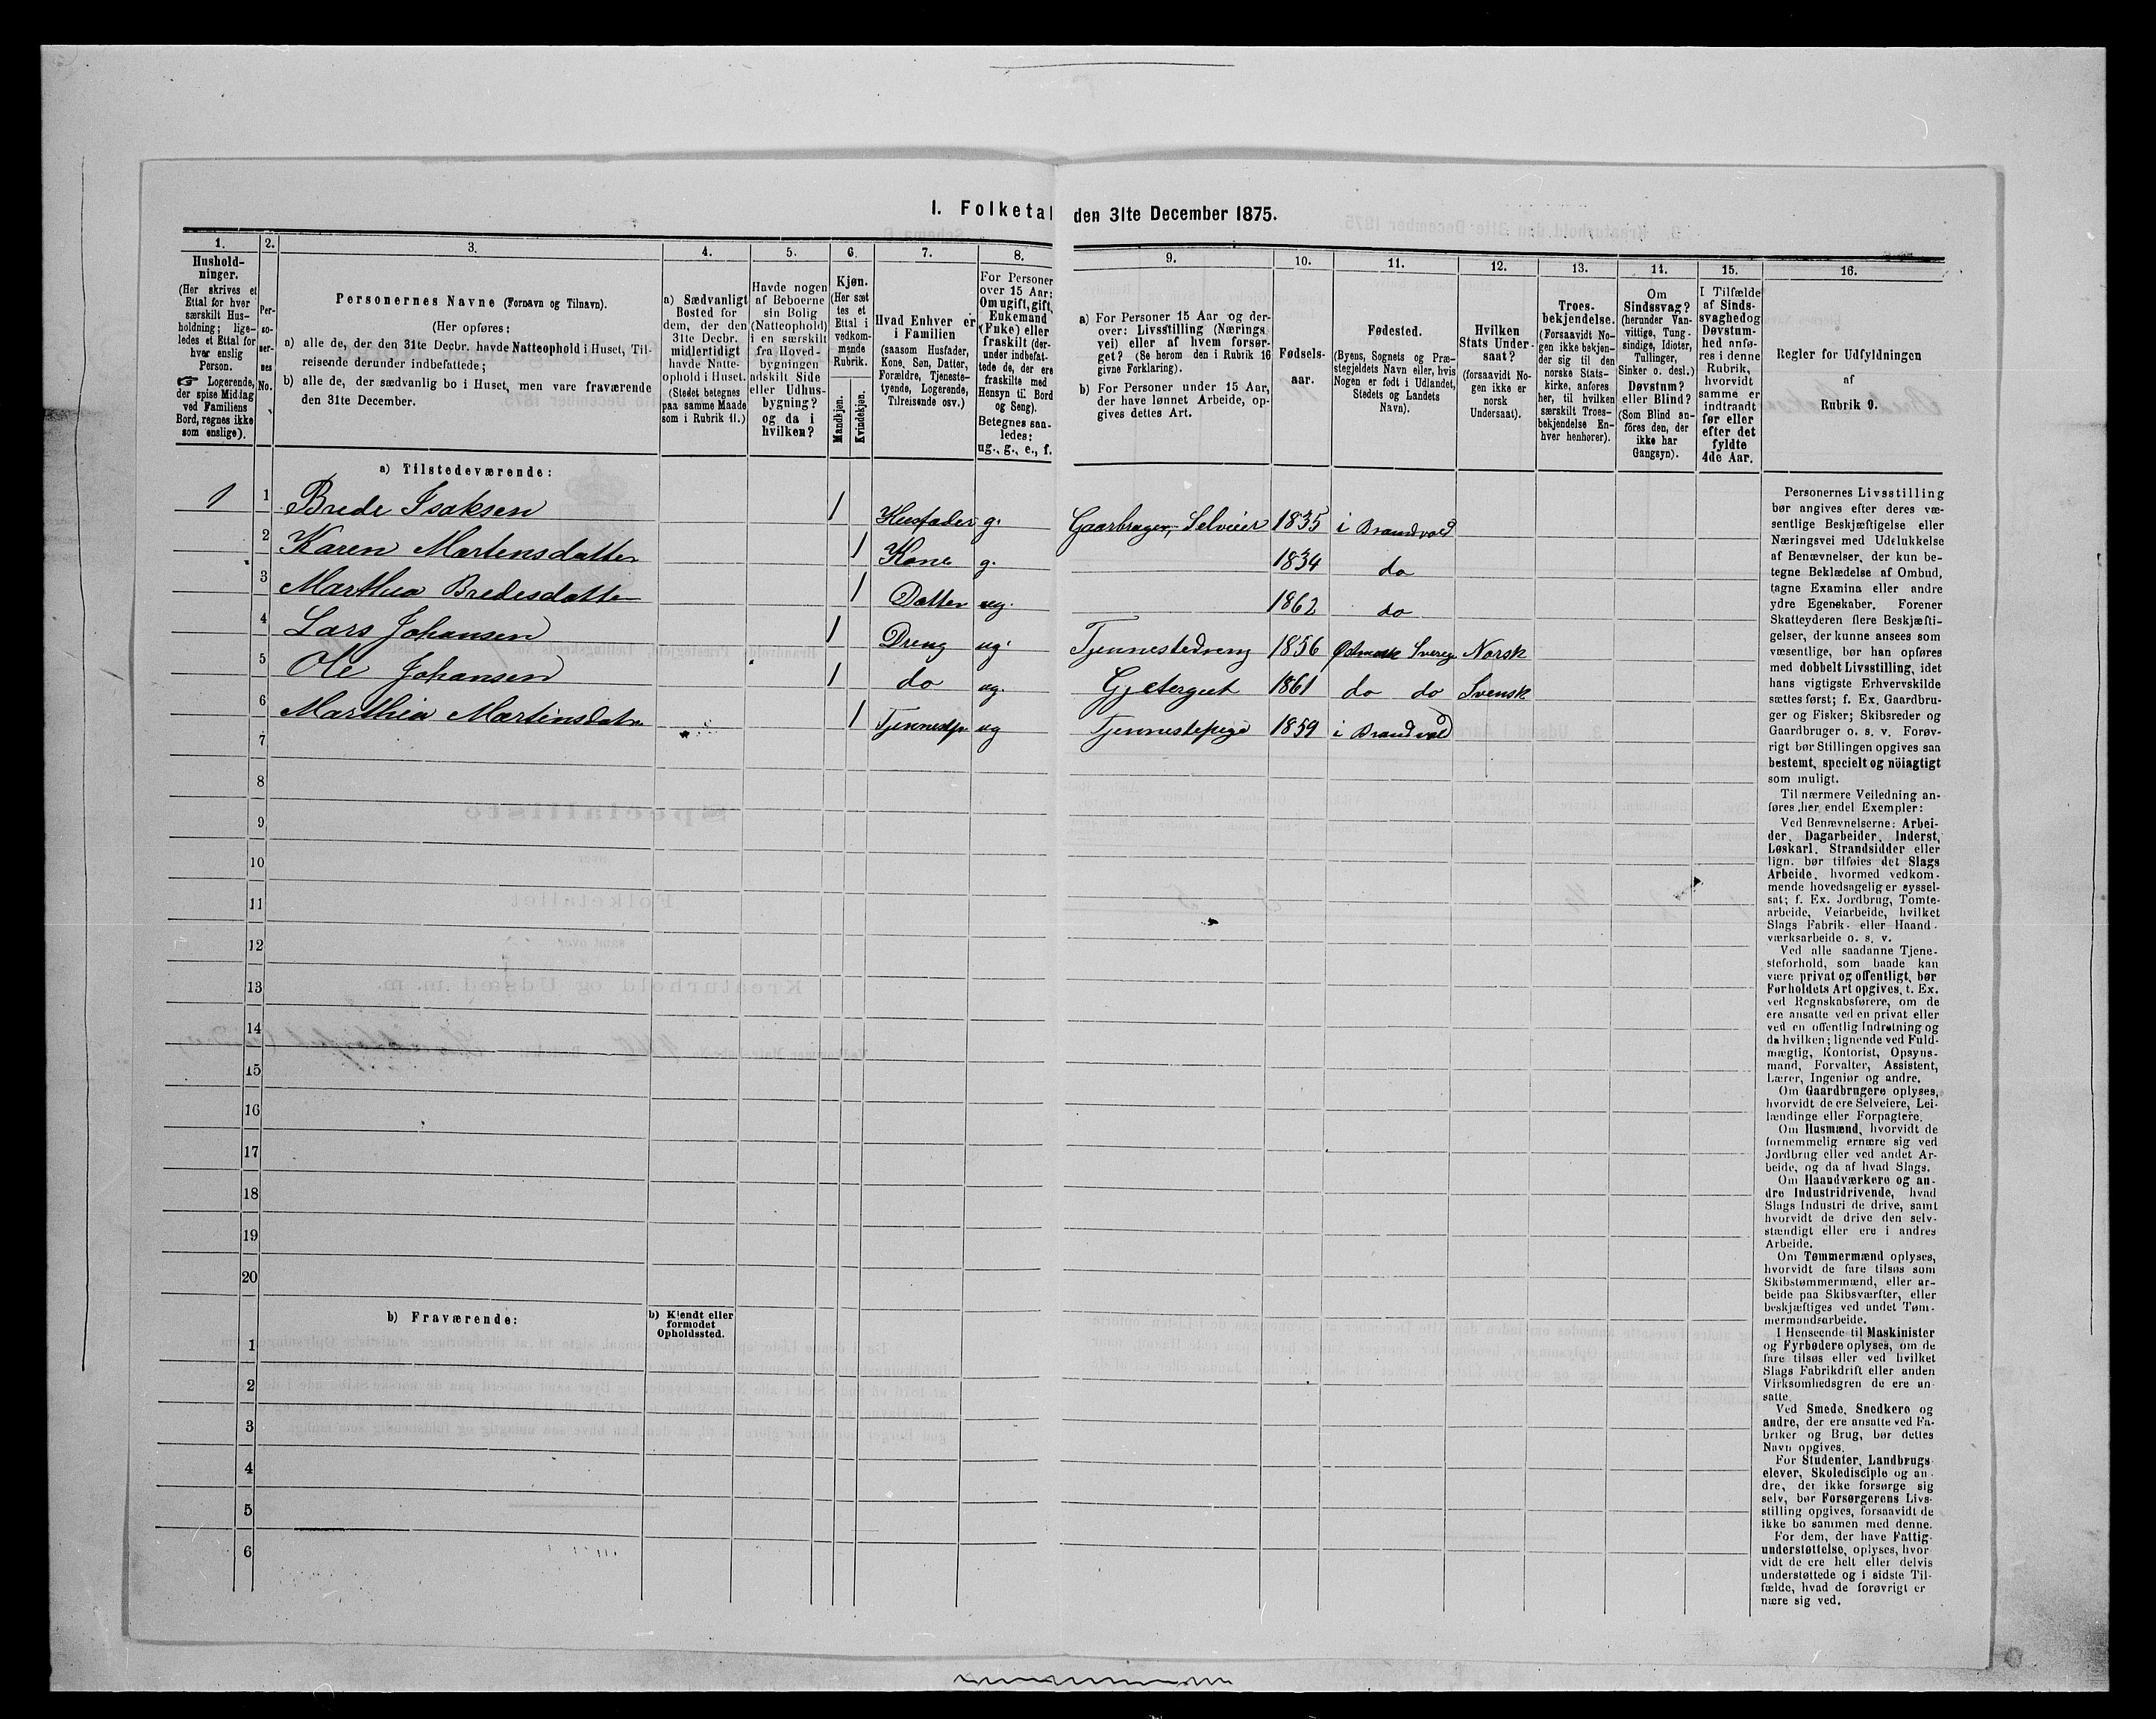 I. Folketal den 31te December 1875.
1.
Hushold-
ninger.
(Her skrives et
Ettal for hver
særskilt Hus-
holdning; lige-
ledes et Ettal for
hver enslig
Person.
☞ Logerende,
der spise Middag
ved Familiens
Bord, regnes ikke
som enslige).
2.
Per-
so-
ner-
nes
No.
3.
Personernes Navne (Fornavn og Tilnavn).
(Her opføres:
a) alle de, der den 31te Decbr. havde Natteophold i Huset, Til-
reisende derunder indbefattede;
b) alle de, der sædvanlig bo i Huset, men vare fraværende
den 31te December.
4.
a) Sædvanligt
Bosted for
dem, der den
31te Decbr.
midlertidigt
havde Natte-
ophold i Huset.
(Stedet betegnes
paa samme Maade
som i Rubrik 11.)
5.
Havde nogen
af Beboerne
sin Bolig
(Natteophold)
i en særskilt
fra Hoved-
bygningen
adskilt Side
eller Udhus-
bygning?
og da i
hvilken?
6.
Kjøn.
(Her sæt
tes et
Ettal i
vedkom-
mende
Rubrik.
Mandkjøn.
Kvindekjøn.
7.
Hvad Enhver er
i Familien
(saasom Husfader,
Kone, Søn, Datter,
Forældre, Tjeneste-
tyende, Logerende,
Tilreisende osv.)
8.
For Personer
over 15 Aar:
Om ugift, gift,
Enkemand
(Enke) eller
fraskilt (der-
under indbefat-
tede de, der ere
fraskilte med
Hensyn til Bord
og Seng).
Betegnes saa-
ledes:
ug., g., e., f.
9.
a) For Personer 15 Aar og der-
over: Livsstilling (Nærings
vei) eller af hvem forsør-
get? (Se herom den i Rubrik 16
givne Forklaring).
b) For Personer under 15 Aar,
der have lønnet Arbeide, op-
gives dettes Art.
10.
Fødsels-
aar.
11.
Fødested.
(Byens, Sognets og Præ-
stegjeldets Navn eller, hvis
Nogen er født i Udlandet,
Stedets og Landets
Navn).
12.
Hvilken
Stats Under-
saat?
(forsaavidt No-
gen ikke er
norsk
Undersaat).
13.
Troes-
bekjendelse.
(Forsaavidt No-
gen ikke bekjen-
der sig til den
norske Stats-
kirke, anføres
her, til hvilken
særskilt Troes-
bekjendelse En-
hver henhører).
14.
Om
Sindssvag?
(herunder Van-
vittige, Tung-
sindige, Idioter,
Tullinger,
Sinker o. desl.)
Døvstum?
eller Blind?
(Som Blind an-
føres den, der
ikke har
Gangsyn).
15.
I Tilfælde
af Sinds-
svaghed og
Døvstum-
hed anfø-
res i denne
Rubrik,
hvorvidt
samme er
indtraadt
før eller
efter det
fyldte
4de Aar.
16.
Regler for Udfyldningen
af
Rubrik 9.
a) Tilstedeværende:
1 1 Brede Isaksen 1 Husfader g. Gaarbruger, Selveier 1835 i Brandvold
2 Karen Martensdatter 1 Kone g. 1834 do
3 Marthea Bredesdatter 1 Datter ug. 1862 do
4 Lars Johansen 1 Dreng ug. Tjennestedreng 1856 Østmark Sverge Norsk
5 Ole Johansen 1 do ug. Gjetergut 1861 do do Svensk
6 Marthea Martinsdatr 1 Tjennestp ug Tjennestepige 1859 i Brandvold
7
8
9
10
11
12
13
14
15
16
17
18
19
20
b) Fraværende:
b) Kjendt eller
formodet
Opholdssted.
1
2
3
4
5
6
Personernes Livsstilling
bør angives efter deres væ-
sentlige Beskjæftigelse eller
Næringsvei med Udelukkelse
af Benævnelser, der kun be-
tegne Beklædelse af Ombud,
tagne Examina eller andre
ydre Egenskaber. Forener
Skatteyderen flere Beskjæfti-
gelser, der kunne ansees som
væsentlige, bør han opføres
med dobbelt Livsstilling, idet
hans vigtigste Erhvervskilde
sættes først; f. Ex. Gaardbru-
ger og Fisker; Skibsreder og
Gaardbruger o. s. v. Forøv-
rigt bør Stillingen opgives saa
bestemt, specielt og nöiagtigt
som muligt.
Til nærmere Veiledning an-
føres her endel Exempler:
Ved Benævnelserne: Arbei-
der, Dagarbeider, Inderst,
Løskarl, Strandsidder eller
lign. bør tilføies det Slags
Arbeide, hvormed vedkom-
mende hovedsagelig er syssel-
sat; f. Ex. Jordbrug, Tomte-
arbeide, Veiarbeide, hvilket
Slags Fabrik- eller Haand-
værksarbeide o. s. v.
Ved alle saadanne Tjene-
steforhold, som baade kan
være privat og offentligt, bør
Forholdets Art opgives, t. Ex.
ved Regnskabsførere, om de
ere ansatte ved en privat eller
ved en offentlig Indretning og
da hvilken; lignende ved Fuld-
mægtig, Kontorist, Opsyns-
mand, Forvalter, Assistent,
Lærer, Ingeniør og andre.
Om Gaardbrugere oplyses,
hvorvidt de ere Selveiere, Lei-
lændinge eller Forpagtere.
Om Husmænd, hvorvidt de
fornemmelig ernære sig ved
Jordbrug eller ved andet Ar-
beide, og da af hvad Slags.
Om Haandværkere og an-
dre Industridrivende, hvad
Slags Industri de drive, samt
hvorvidt de drive den selv-
stændigt eller ere i andres
Arbeide.
Om Tømmermænd oplyses,
hvorvidt de fare tilsøs som
Skibstømmermænd, eller ar-
beide paa Skibsværfter, eller
beskjæftiges ved andet Tøm-
mermandsarbeide.
I Henseende til Maskinister
og Fyrbødere oplyses, om de
fare tilsøs eller ved hvilket
Slags Fabrikdrift eller anden
Virksomhedsgren de ere an-
satte.
Ved Smede, Snedkere og
andre, der ere ansatte ved Fa-
briker og Brug, bør dettes
Navn opgives.
For Studenter, Landbrugs-
elever, Skoledisciple og an-
dre, der ikke forsørge sig
selv, bør Forsørgerens Livs-
stilling opgives, forsaavidt de
ikke bo sammen med denne.
For dem, der have Fattig-
understøttelse, oplyses, hvor-
vidt de ere helt eller delvis
understøttede og i sidste Til-
fælde, hvad de forøvrigt er
nære sig ved.